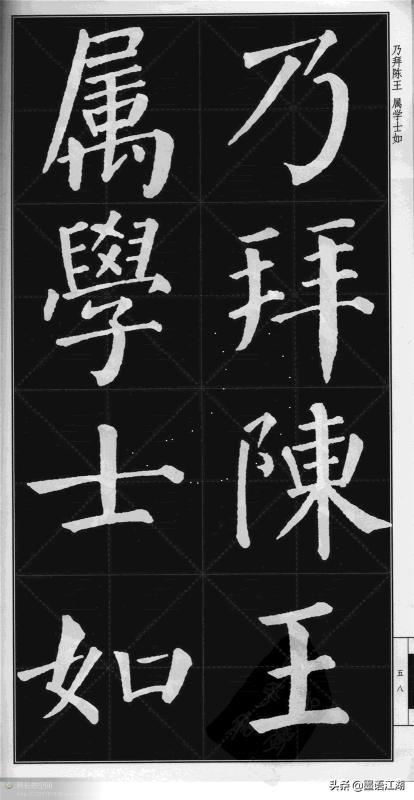 乃拜陳王
属學士如
乃拜陈王 属学士如
五八
头条@墨语江湖